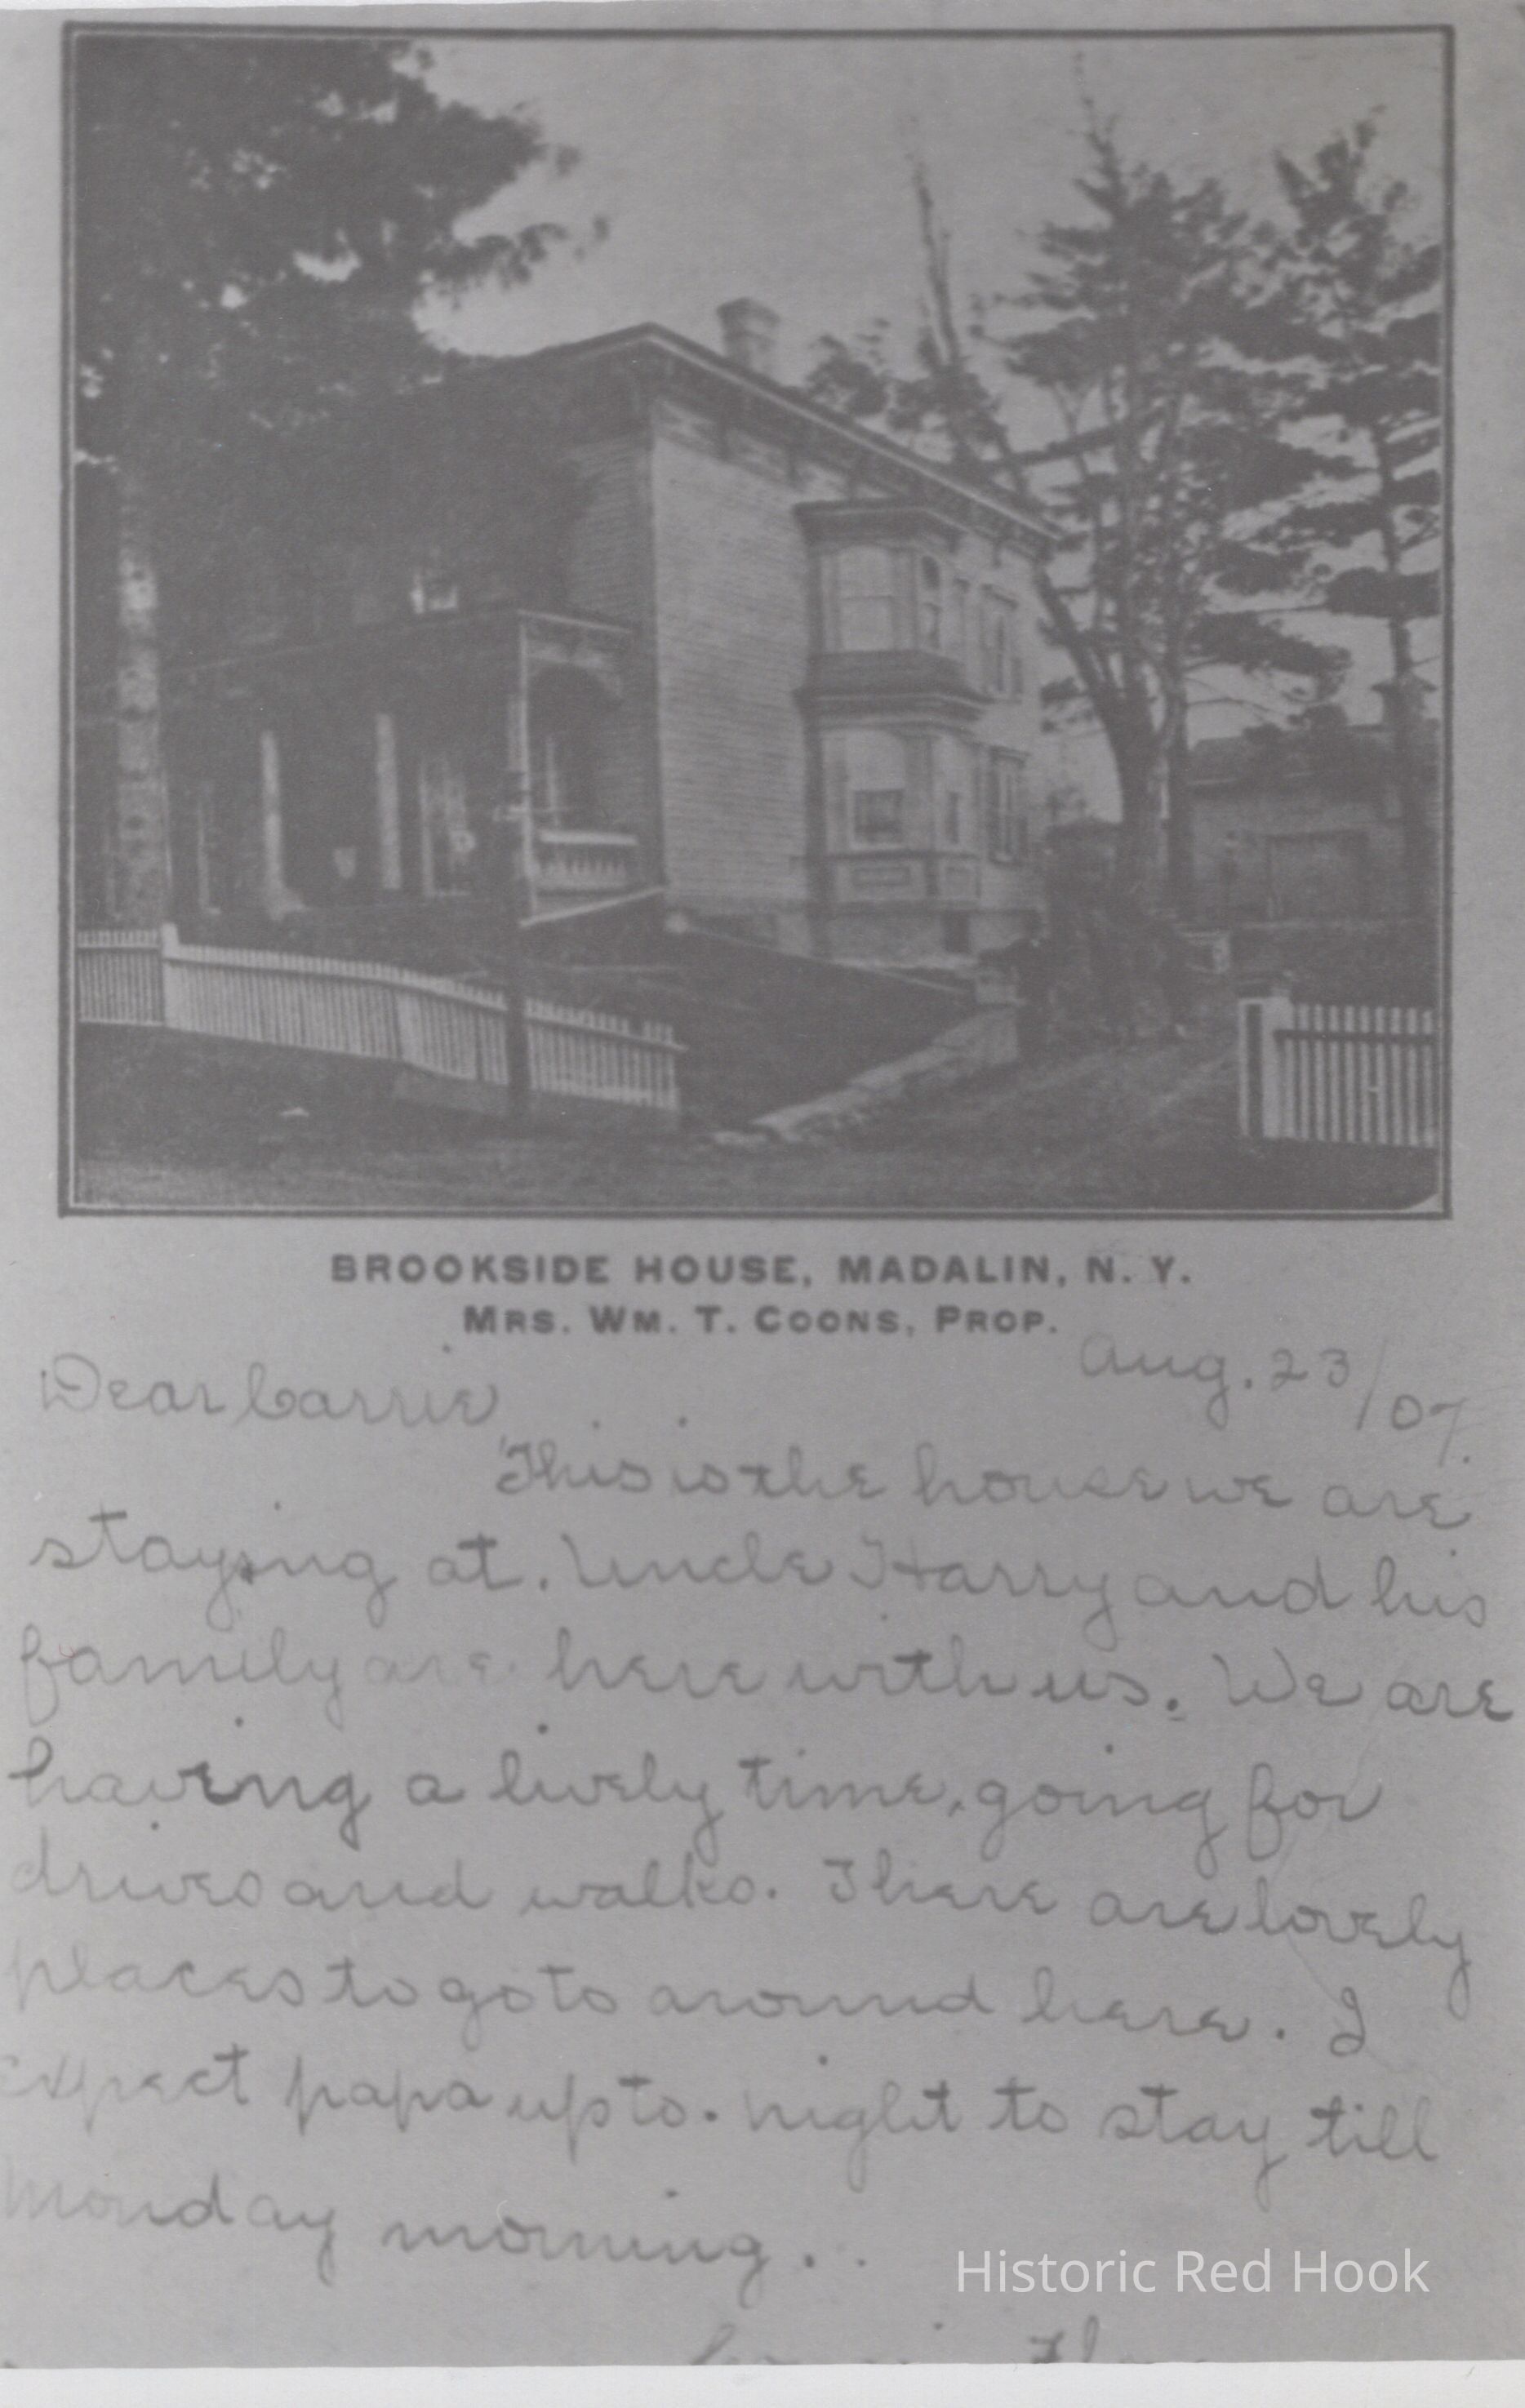 BROOKSIDE HOUSE, MADALIN, N. Y.
MRS. WM. T. COONS, PROP.
Aug. 23/07.
Dear Carrie
This is the house we are
staying at. Uncle Harry and his
family are here with us. We are
having a lively time, going for
drives and walks. There are lovely
places to go to around here. I
expect papa up to-night to stay till
Monday morning..
Historic Red Hook